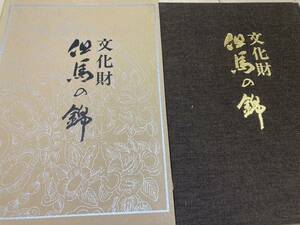 文化財
但馬の錦
文化財
但馬の錦